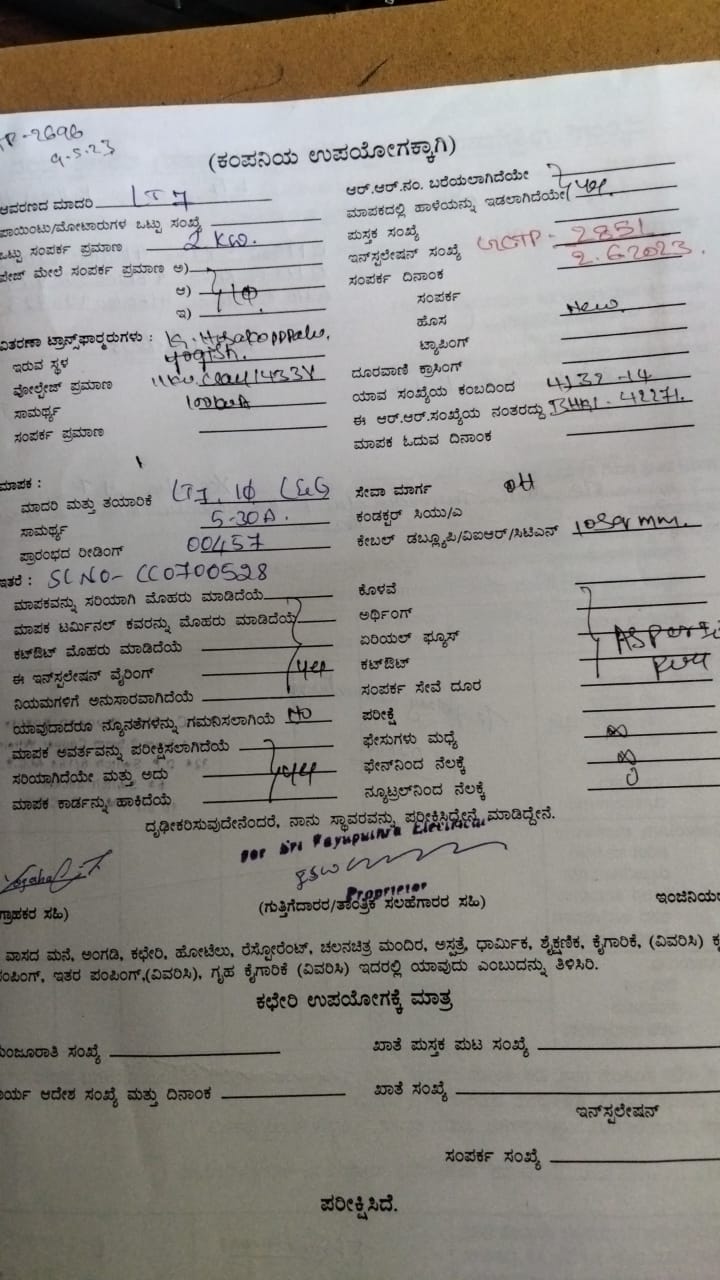 TP-2696
9.5.23
(ಕಂಪನಿಯ ಉಪಯೋಗಕ್ಕಾಗಿ)
ಆವರಣದ ಮಾದರಿ LT7
ಪಾಯಿಂಟು/ಮೋಟಾರುಗಳ ಒಟ್ಟು ಸಂಖ್ಯೆ
ಒಟ್ಟು ಸಂಪರ್ಕ ಪ್ರಮಾಣ 2 KW.
ಫೇಜ್ ಮೇಲೆ ಸಂಪರ್ಕ ಪ್ರಮಾಣ ಅ)
ಆ) 1Φ
ಇ)
ವಿತರಣಾ ಟ್ರಾನ್ಸ್‌ಫಾರ್‍ಮರುಗಳು :
ಇರುವ ಸ್ಥಳ
ವೋಲ್ಟೇಜ್ ಪ್ರಮಾಣ 433V
ಸಾಮರ್ಥ್ಯ 100KVA
ಸಂಪರ್ಕ ಪ್ರಮಾಣ
ಆರ್.ಆರ್.ನಂ. ಬರೆಯಲಾಗಿದೆಯೇ
ಮಾಪಕದಲ್ಲಿ ಹಾಳೆಯನ್ನು ಇಡಲಾಗಿದೆಯೇ yes
ಪುಸ್ತಕ ಸಂಖ್ಯೆ
ಇನ್‌ಸ್ಟಲೇಷನ್ ಸಂಖ್ಯೆ TP-2851
ಸಂಪರ್ಕ ದಿನಾಂಕ 2.6.2023.
ಸಂಪರ್ಕ
ಹೊಸ New.
ಟ್ಯಾಪಿಂಗ್
ದೂರವಾಣಿ ಕ್ರಾಸಿಂಗ್
ಯಾವ ಸಂಖ್ಯೆಯ ಕಂಬದಿಂದ
ಈ ಆರ್.ಆರ್.ಸಂಖ್ಯೆಯ ನಂತರದ್ದು 42271.
ಮಾಪಕ ಓದುವ ದಿನಾಂಕ
ಮಾಪಕ :
ಮಾದರಿ ಮತ್ತು ತಯಾರಿಕೆ LT7. 1Φ L&G
ಸಾಮರ್ಥ್ಯ 5-30A.
ಪ್ರಾರಂಭದ ರೀಡಿಂಗ್ 00457
ಇತರೆ : SLNO- CC0700528
ಮಾಪಕವನ್ನು ಸರಿಯಾಗಿ ಮೊಹರು ಮಾಡಿದೆಯೆ
ಮಾಪಕ ಟರ್ಮಿನಲ್ ಕವರನ್ನು ಮೊಹರು ಮಾಡಿದೆಯೆ
ಕಟ್‌ಔಟ್ ಮೊಹರು ಮಾಡಿದೆಯೆ
ಈ ಇನ್‌ಸ್ಟಲೇಷನ್ ವೈರಿಂಗ್ yes
ನಿಯಮಗಳಿಗೆ ಅನುಸಾರವಾಗಿದೆಯೆ
ಯಾವುದಾದರೂ ನ್ಯೂನತೆಗಳನ್ನು ಗಮನಿಸಲಾಗಿಯೆ No
ಮಾಪಕ ಅವರ್ತವನ್ನು ಪರೀಕ್ಷಿಸಲಾಗಿದೆಯೆ
ಸರಿಯಾಗಿದೆಯೇ ಮತ್ತು ಅದು yes
ಮಾಪಕ ಕಾರ್ಡನ್ನು ಹಾಕಿದೆಯೆ
ಸೇವಾ ಮಾರ್ಗ OH
ಕಂಡಕ್ಟರ್ ಸಿಯು/ಎ
ಕೇಬಲ್ ಡಬ್ಲ್ಯೂಪಿ/ವಿಐಆರ್/ಸಿಟಿಎಸ್ 10sqrmm.
ಕೊಳವೆ
ಅರ್ಥಿಂಗ್
ಏರಿಯಲ್ ಫ್ಯೂಸ್ AS per
ಕಟ್‌ಔಟ್
ಸಂಪರ್ಕ ಸೇವೆ ದೂರ
ಪರೀಕ್ಷೆ
ಫೇಸುಗಳು ಮಧ್ಯೆ ∞
ಫೇಸ್‌ನಿಂದ ನೆಲಕ್ಕೆ ∞
ನ್ಯೂಟ್ರಲ್‌ನಿಂದ ನೆಲಕ್ಕೆ 0
ದೃಢೀಕರಿಸುವುದೇನೆಂದರೆ, ನಾನು ಸ್ಥಾವರವನ್ನು ಪರೀಕ್ಷಿಸಿದ್ದೇನೆ ಮಾಡಿದ್ದೇನೆ.
For Sri Vayuputhra Electrical
Proprietor
ಗ್ರಾಹಕರ ಸಹಿ)
(ಗುತ್ತಿಗೆದಾರರ/ತಾಂತ್ರಿಕ ಸಲಹೆಗಾರರ ಸಹಿ)
ವಾಸದ ಮನೆ, ಅಂಗಡಿ, ಕಛೇರಿ, ಹೋಟೆಲು, ರೆಸ್ಟೋರೆಂಟ್, ಚಲನಚಿತ್ರ ಮಂದಿರ, ಅಸ್ಪತ್ರೆ, ಧಾರ್ಮಿಕ, ಶೈಕ್ಷಣಿಕ, ಕೈಗಾರಿಕೆ, (ವಿವರಿಸಿ)
ಪಂಪಿಂಗ್, ಇತರ ಪಂಪಿಂಗ್,(ವಿವರಿಸಿ), ಗೃಹ ಕೈಗಾರಿಕೆ (ವಿವರಿಸಿ) ಇದರಲ್ಲಿ ಯಾವುದು ಎಂಬುದನ್ನು ತಿಳಿಸಿರಿ.
ಕಛೇರಿ ಉಪಯೋಗಕ್ಕೆ ಮಾತ್ರ
ಮಂಜೂರಾತಿ ಸಂಖ್ಯೆ
ಖಾತೆ ಪುಸ್ತಕ ಪುಟ ಸಂಖ್ಯೆ
ಕಾರ್ಯ ಆದೇಶ ಸಂಖ್ಯೆ ಮತ್ತು ದಿನಾಂಕ
ಖಾತೆ ಸಂಖ್ಯೆ
ಇನ್‌ಸ್ಟಲೇಷನ್
ಸಂಪರ್ಕ ಸಂಖ್ಯೆ
ಪರೀಕ್ಷಿಸಿದೆ.